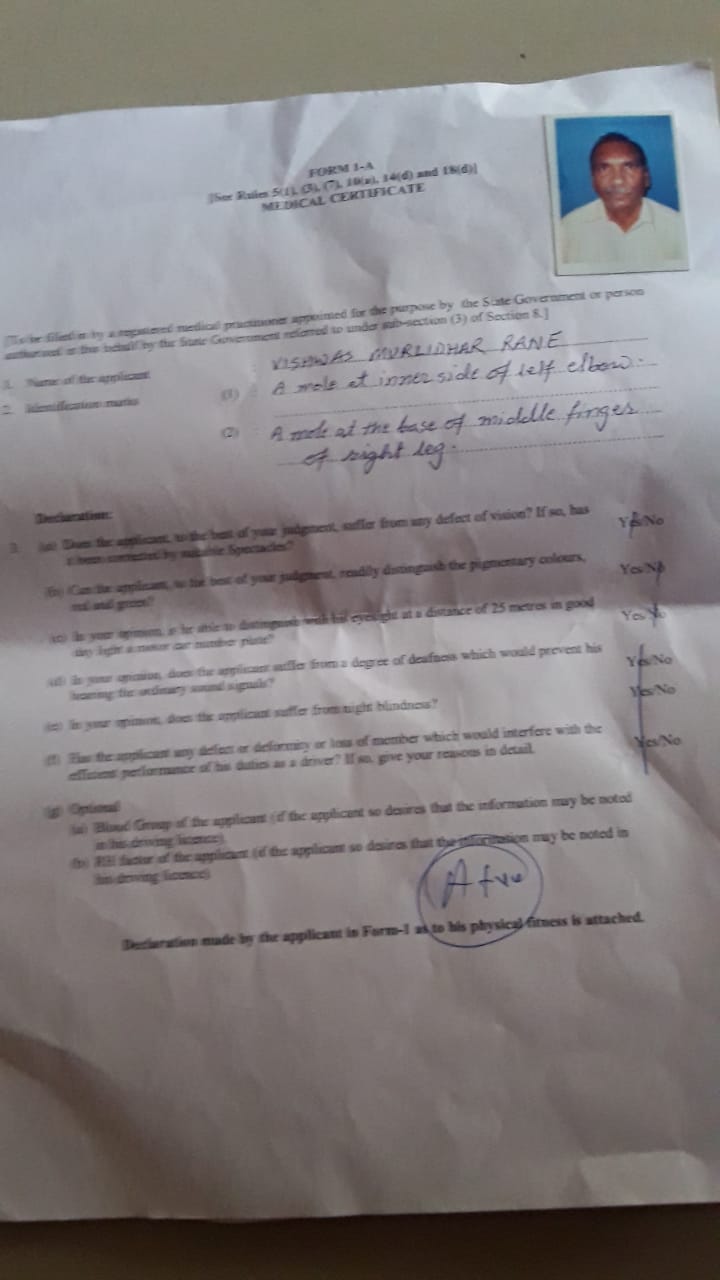 FORM 1-A
[See Rules 5(1), (3), (7), 10(a), 14(d) and 18(d)]
MEDICAL CERTIFICATE
[To be filled in by a registered medical practitioner appointed for the purpose by the State Government or person
authorised in this behalf by the State Government referred to under sub-section (3) of Section 8.]
1. Name of the applicant : VISHWAS MURLIDHAR RANE
2. Identification marks (1) : A mole at inner side of left elbow.
(2) : A mole at the base of middle finger
of right leg.
Declaration:
3. (a) Does the applicant, to the best of your judgment, suffer from any defect of vision? If so, has Yes/No
it been corrected by suitable Spectacles?
(b) Can the applicant, to the best of your judgment, readily distinguish the pigmentary colours, Yes/No
red and green?
(c) In your opinion, is he able to distinguish with his eyesight at a distance of 25 metres in good Yes/No
day light a motor car number plate?
(d) In your opinion, does the applicant suffer from a degree of deafness which would prevent his Yes/No
hearing the ordinary sound signals?
(e) In your opinion, does the applicant suffer from night blindness? Yes/No
(f) Has the applicant any defect or deformity or loss of member which would interfere with the Yes/No
efficient performance of his duties as a driver? If so, give your reasons in detail.
(g) Optional
(a) Blood Group of the applicant (if the applicant so desires that the information may be noted
in his driving licence)
(b) RH factor of the applicant (if the applicant so desires that the information may be noted in
his driving licence)
A +ve
Declaration made by the applicant in Form-1 as to his physical fitness is attached.